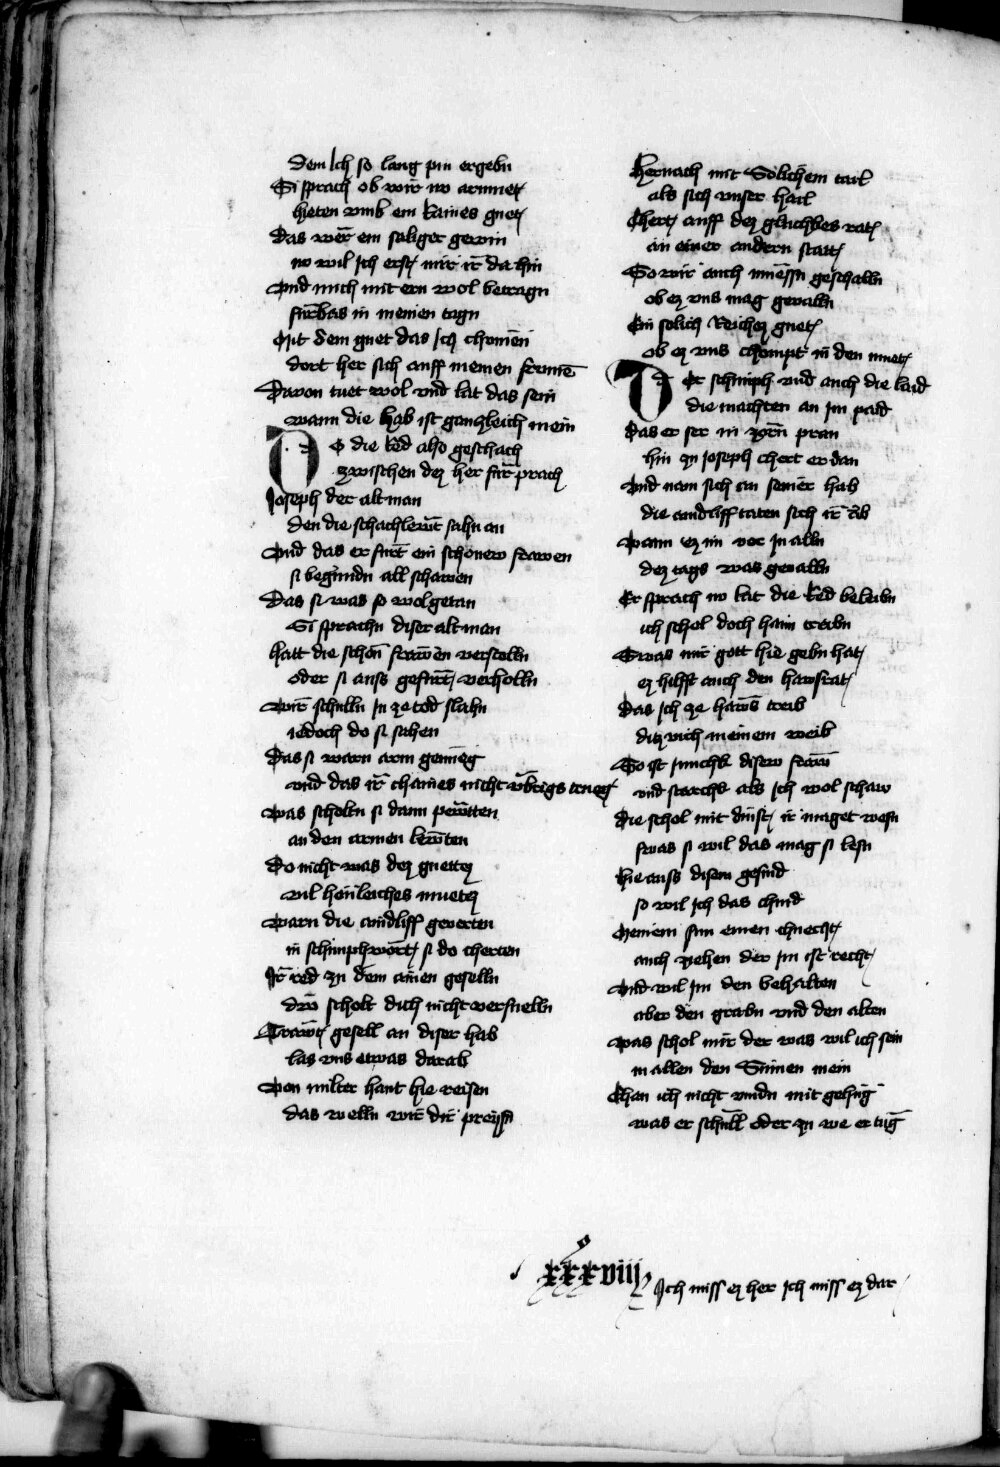 dem Ich so lang pin ergebn
Si sprach ob wir no armuet
hieten vmb ein klaines guet
Das wer ein saliger gewin
no wil Ich erst mir ir da hin
Vnd mich mit ern wol betragn
fürbas in meinen tagn
Mit dem guet das Ich chomen
dort her sich auff meinen fromen
Davon tuet wol vnd lat das sein
wann die hab ist gantzleich mein
Do die Red also geschach
zwischen dez her fürprach
Joseph der alt man
den die schachlewt sahn an
Vnd das er furt ein schonew frawen
si begundn all schawen
Das si was so wolgetan
Si sprachn diser alt man
hatt die schön frawen verstolln
oder si auss gefürt verholln
Wir schulln In ze tod slahn
iedoch do si sahen
Das si warn arm genueg
vnd das ir chaines nicht vbrigs trueg
Was scholtn si dann pewtten
an den armen lewten
Do nicht was dez guettez
vil heinleiches muetez
Warn die aindliff geverten
in schimphwort si do cherten
Ir red zu dem ainen geselln
dw scholt dich nicht verstelln
Trawt gesell an diser hab
las vns etwas darab
Von milter hant hie reisen
das welln wir dir preysn
Hernach mit Solichem tail
als sich vnser hail
Chert auff dez glukhes rat
an einer andern statt
So wir auch muessn geschalln
ob ez vns mag gevalln
Ein solich Reichez guet
ob ez vns chompt in den muet
Der schimph vnd auch die laid
die machten an im paid
das er ser in zorn pran
hin zu Joseph chert er dan
Vnd nam sich an seiner hab
die aindliff taten sich ir ab
Wann ez im vor In alln
dez tags was gevalln
Er sprach no lat die Red beleibn
ich schol doch haim treibn
Swas mir gott hie gebn hat
ez hilfft auch den hawsrat
Das Ich ze haws treib
ditz vich meinem weib
So ist junchk disew fraw
vnd starchk als Ich wol schaw
die schol mit dinst ir maget wesn
swas si wil das mag si lesn
hie auss disem gesind
so wil Ich das chind
Meinem sun einen chnecht
auch ziehen der im ist recht
Vnd wil im den behalten
aber den grabn vnd den alten
Was schol mir der was wil ich sein
in allen den Sinnen mein
Chan ich nicht vindn mit gehüg
was er schull oder zu we er tüg
xxxviij
Ich miss ez her Ich miss ez dar